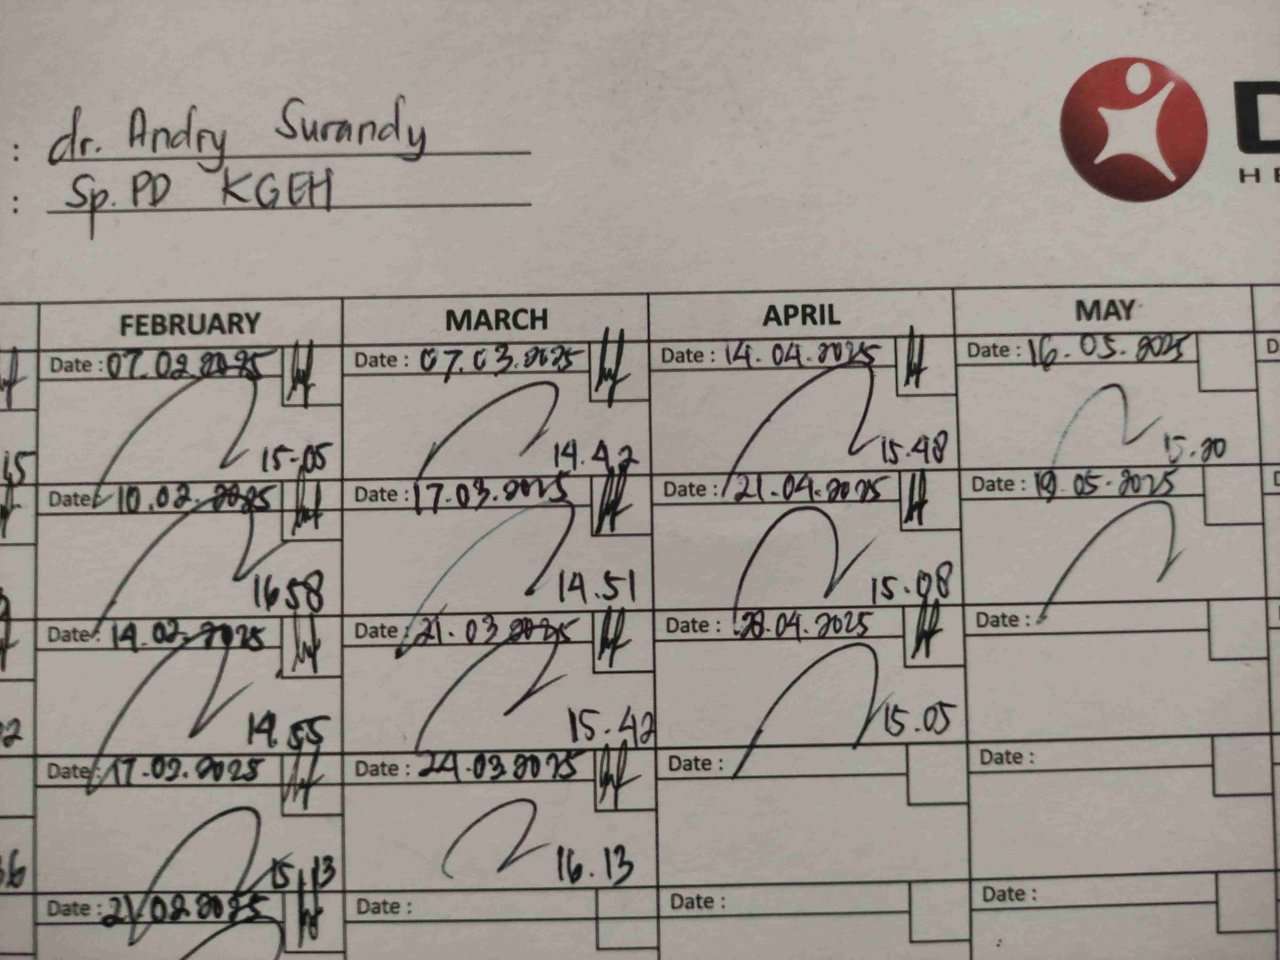 : dr. Andry Surandy
: Sp.PD KGEH
D
HE
FEBRUARY MARCH APRIL MAY
Date : 07.02.2025 Date : 07.03.2025 Date : 14.04.2025 Date : 16.05.2025 D
15 15-05 14.42 15.48 15.20
Date : 10.02.2025 Date : 17.03.2025 Date : 21.04.2025 Date : 19.05.2025
1658 14.51 15.08
Date : 14.02.2025 Date : 21.03 2025 Date : 28.04.2025 Date :
2 14.55 15.42 15.05
Date : 17.02.2025 Date : 24.03.2025 Date : Date :
36 15.13 16.13
Date : 21.02.2025 Date : Date : Date :